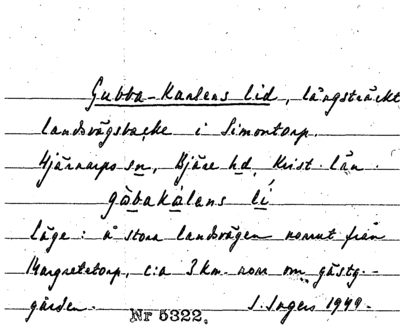 Gubba-Karlens lid, långsträckt
landsvägsbacke i Simontorp.
Hjärnarps sn, Bjäre hd, Krist. län.
gòbakàlans lí
Läge: å stora landsvägen norrut från
Margretetorp, c:a 3 km. norr om gästg.-
gården.
Nr 5322. S. Ingers 1949.